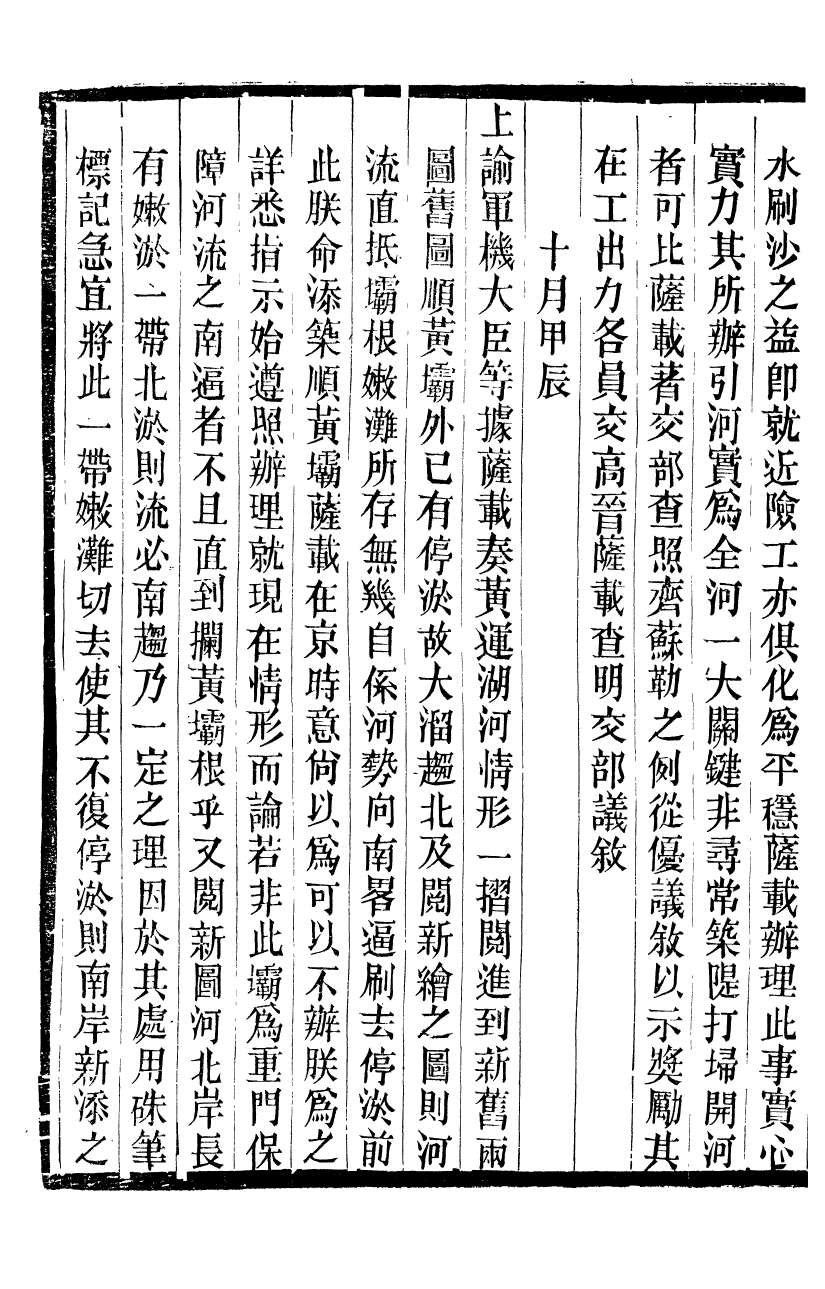 水刷沙之益卽就近險工亦俱化爲平穩薩載辦理此事實心
實力其所辦引河實爲全河一大關鍵非尋常築隄打埽開河
者可比薩載著交部查照齊蘇勒之例從優議敘以示獎勵其
在工出力各員交高晉薩載查明交部議敘
十月甲辰
上諭軍機大臣等據薩載奏黃運湖河情形一摺閱進到新舊兩
圖舊圖順黃壩外已有停淤故大溜趨北及閱新繪之圖則河
流直抵壩根嫩灘所存無幾自係河勢向南畧逼刷去停淤前
此朕命添築順黃壩薩載在京時意尙以爲可以不辦朕爲之
詳悉指示始遵照辦理就現在情形而論若非此壩爲重門保
障河流之南逼者不且直到攔黃壩根乎又閱新圖河北岸長
有嫩淤一帶北淤則流必南趨乃一定之理因於其處用硃筆
標記急宜將此一帶嫩灘切去使其不復停淤則南岸新添之